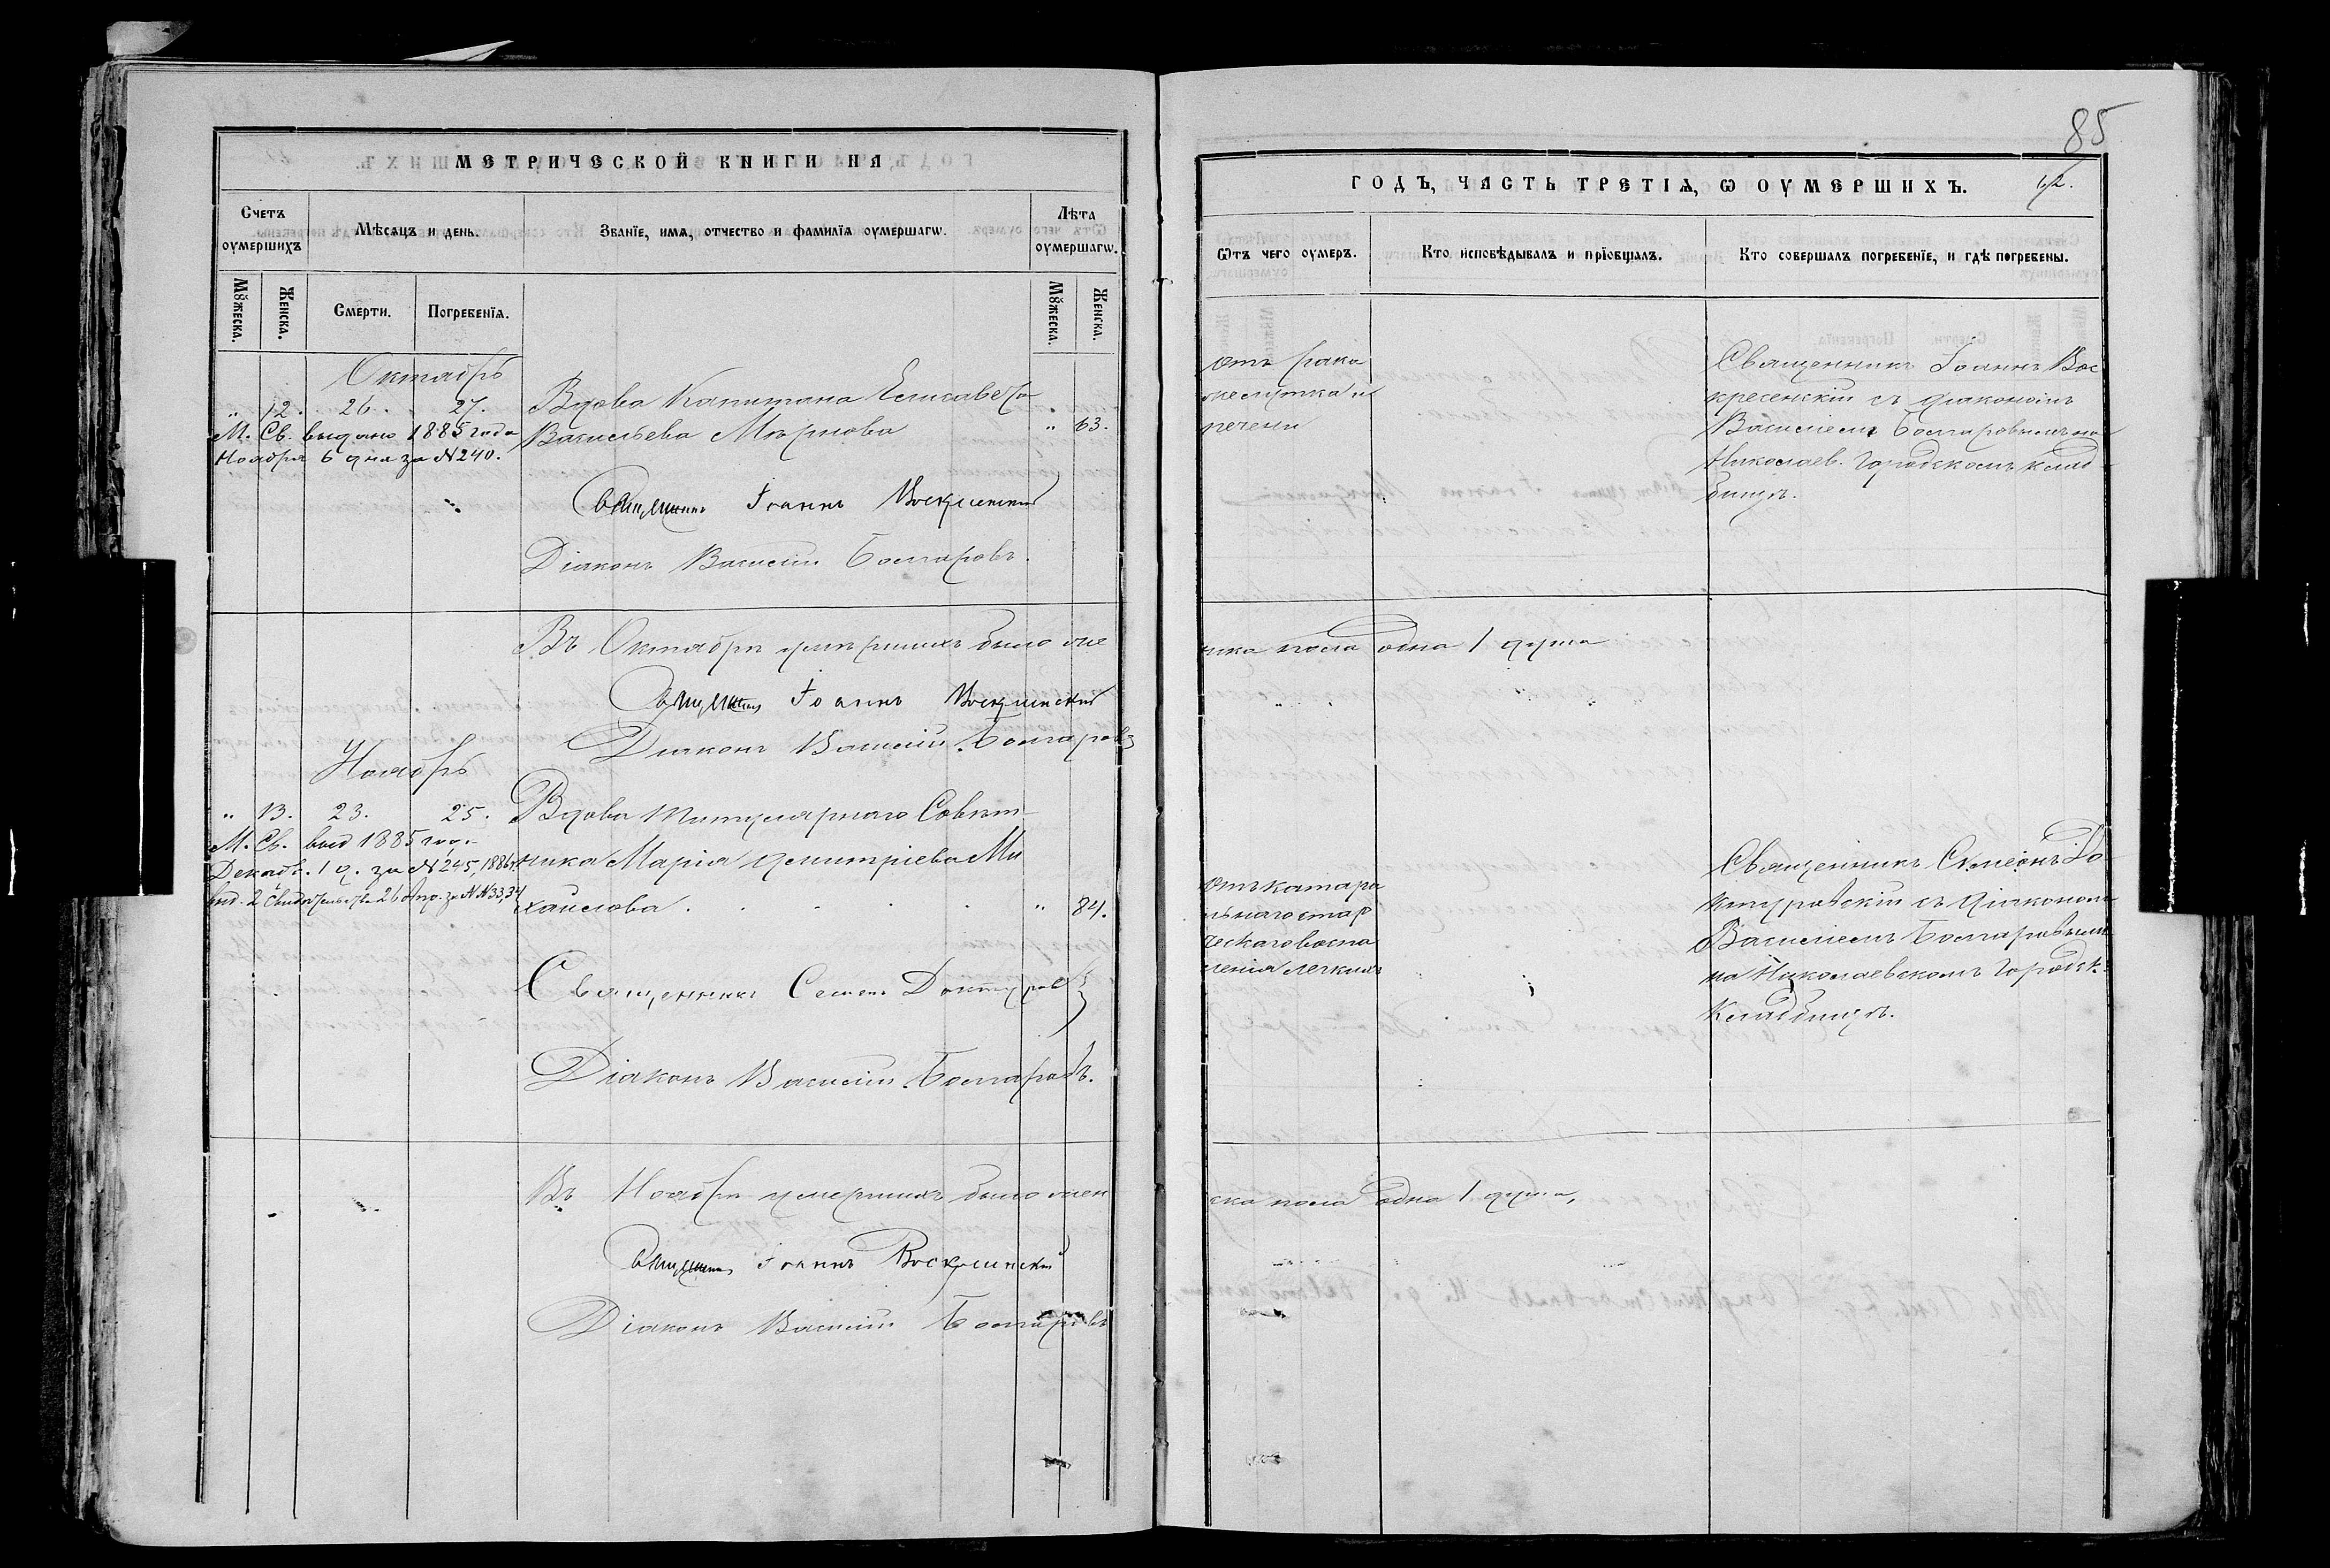 МЕТРИЧЕСКОЙ КНИГИ НА
Счетъ оумершихъ
Мѣсяцъ и день.
Званїе, имя, отчество и фамилїя оумершагѡ.
Лѣта оумершагѡ.
Мꙋжеска.
Женска.
Смерти.
Погребенїя.
Мꙋжеска.
Женска.
Октябрь
" 12. 26. 27. Вдова Капитана Елисавета
М. Св. выдано 1885 года Васильева " 63.
Ноября 6 дня за N 240.
Священникъ Іоаннъ Воскресенскій
Діаконъ Василій Болгаровъ.
Въ Октябрѣ умершихъ было же
Священникъ Іоаннъ Воскресенскій
Діаконъ Василій Болгаровъ
Ноябрь
" 13. 23. 25. Вдова Титулярнаго Совѣт-
М. Св. выд 1885 год.
Декаб. 1 д. за N 245, 1886 г. ника Марія Димитріева Ми
выд. 2 свидѣтельства 26 Апр. за NN 33, 34 хайлова . . . . . " 84.
Священникъ Симеон
Діаконъ Василій Болгаровъ.
Въ Ноябрѣ умершихъ было жен
Священникъ Іоаннъ Воскресенскій
Діаконъ Василій Болгаровъ
85
ГОДЪ, ЧАСТЬ ТРЕТІЯ, Ѡ ОУМЕРШИХЪ.
62.
Ѡтъ чего оумеръ.
Кто исповѣдывалъ и прїобщалъ.
Кто совершалъ погребенїе, и гдѣ погребены.
Отъ рака
желудка и
печени
Священникъ Іоаннъ Вос
кресенскій съ діакономъ
Василіемъ Болгаровымъ на
Николаев. Городскомъ клад
бищѣ.
ска пола одна 1 душа
Отъ катара
льнаго стар
ческаго воспа
ленія легкихъ
Священникъ Симеонъ До
ктуровскій съ діакономъ
Василіемъ Болгаровымъ
на Николаевскомъ Городск.
Кладбищѣ.
ска пола одна 1 душа,